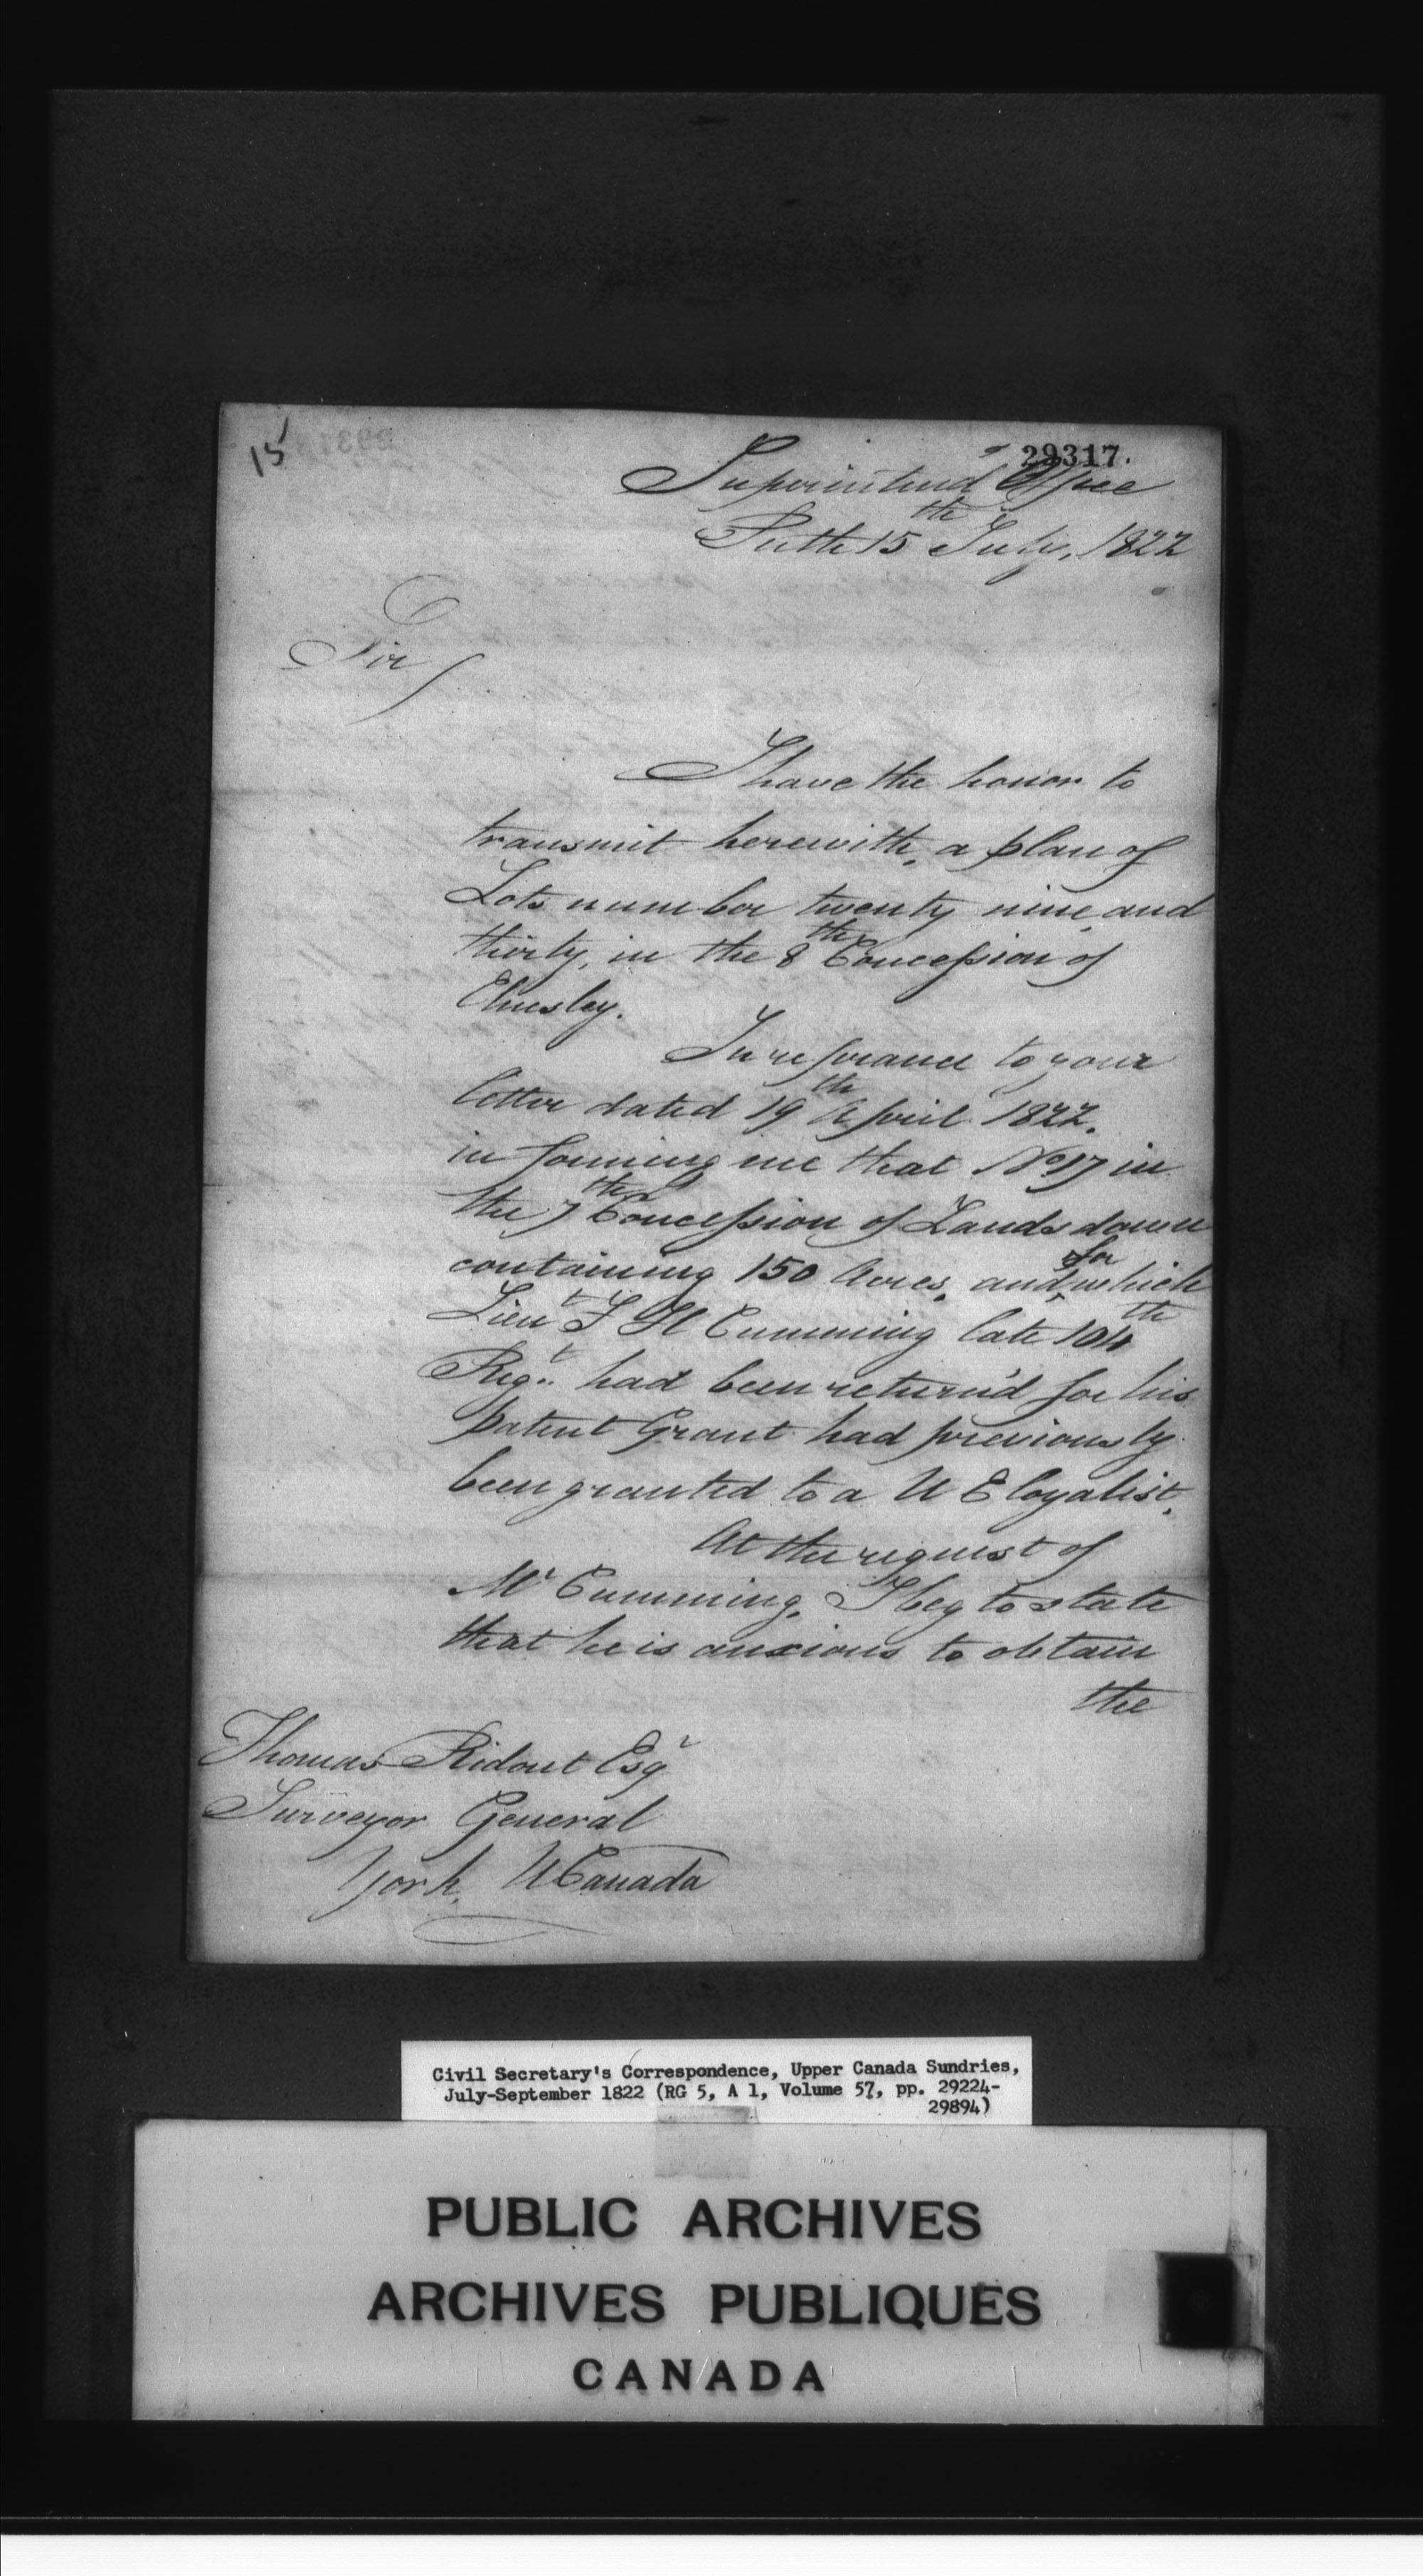 15
29317.
Superintend's Office
Perth 15th July, 1822
Sir
I have the honor to
transmit herewith, a plan of
Lots number twenty nine, and
thirty, in the 8th Concession of
Elmsley.
In referance to your
letter dated 19th April 1822.
informing me that No 17 in
the 7th Concession of Landsdown
containing 150 Acres, and for which
Lieut F H Cumming late 104th
Regt. had been return'd for his
patent Grant had previously
been granted to a U E loyalist,
At the request of
Mr Cumming, I beg to state
that he is anxious to obtain
the
Thomas Ridout Esqr
Surveyor General
York, U Canada
Civil Secretary's Correspondence, Upper Canada Sundries,
July-September 1822 (RG 5, A 1, Volume 57, pp. 29224-
29894)
PUBLIC ARCHIVES
ARCHIVES PUBLIQUES
CANADA